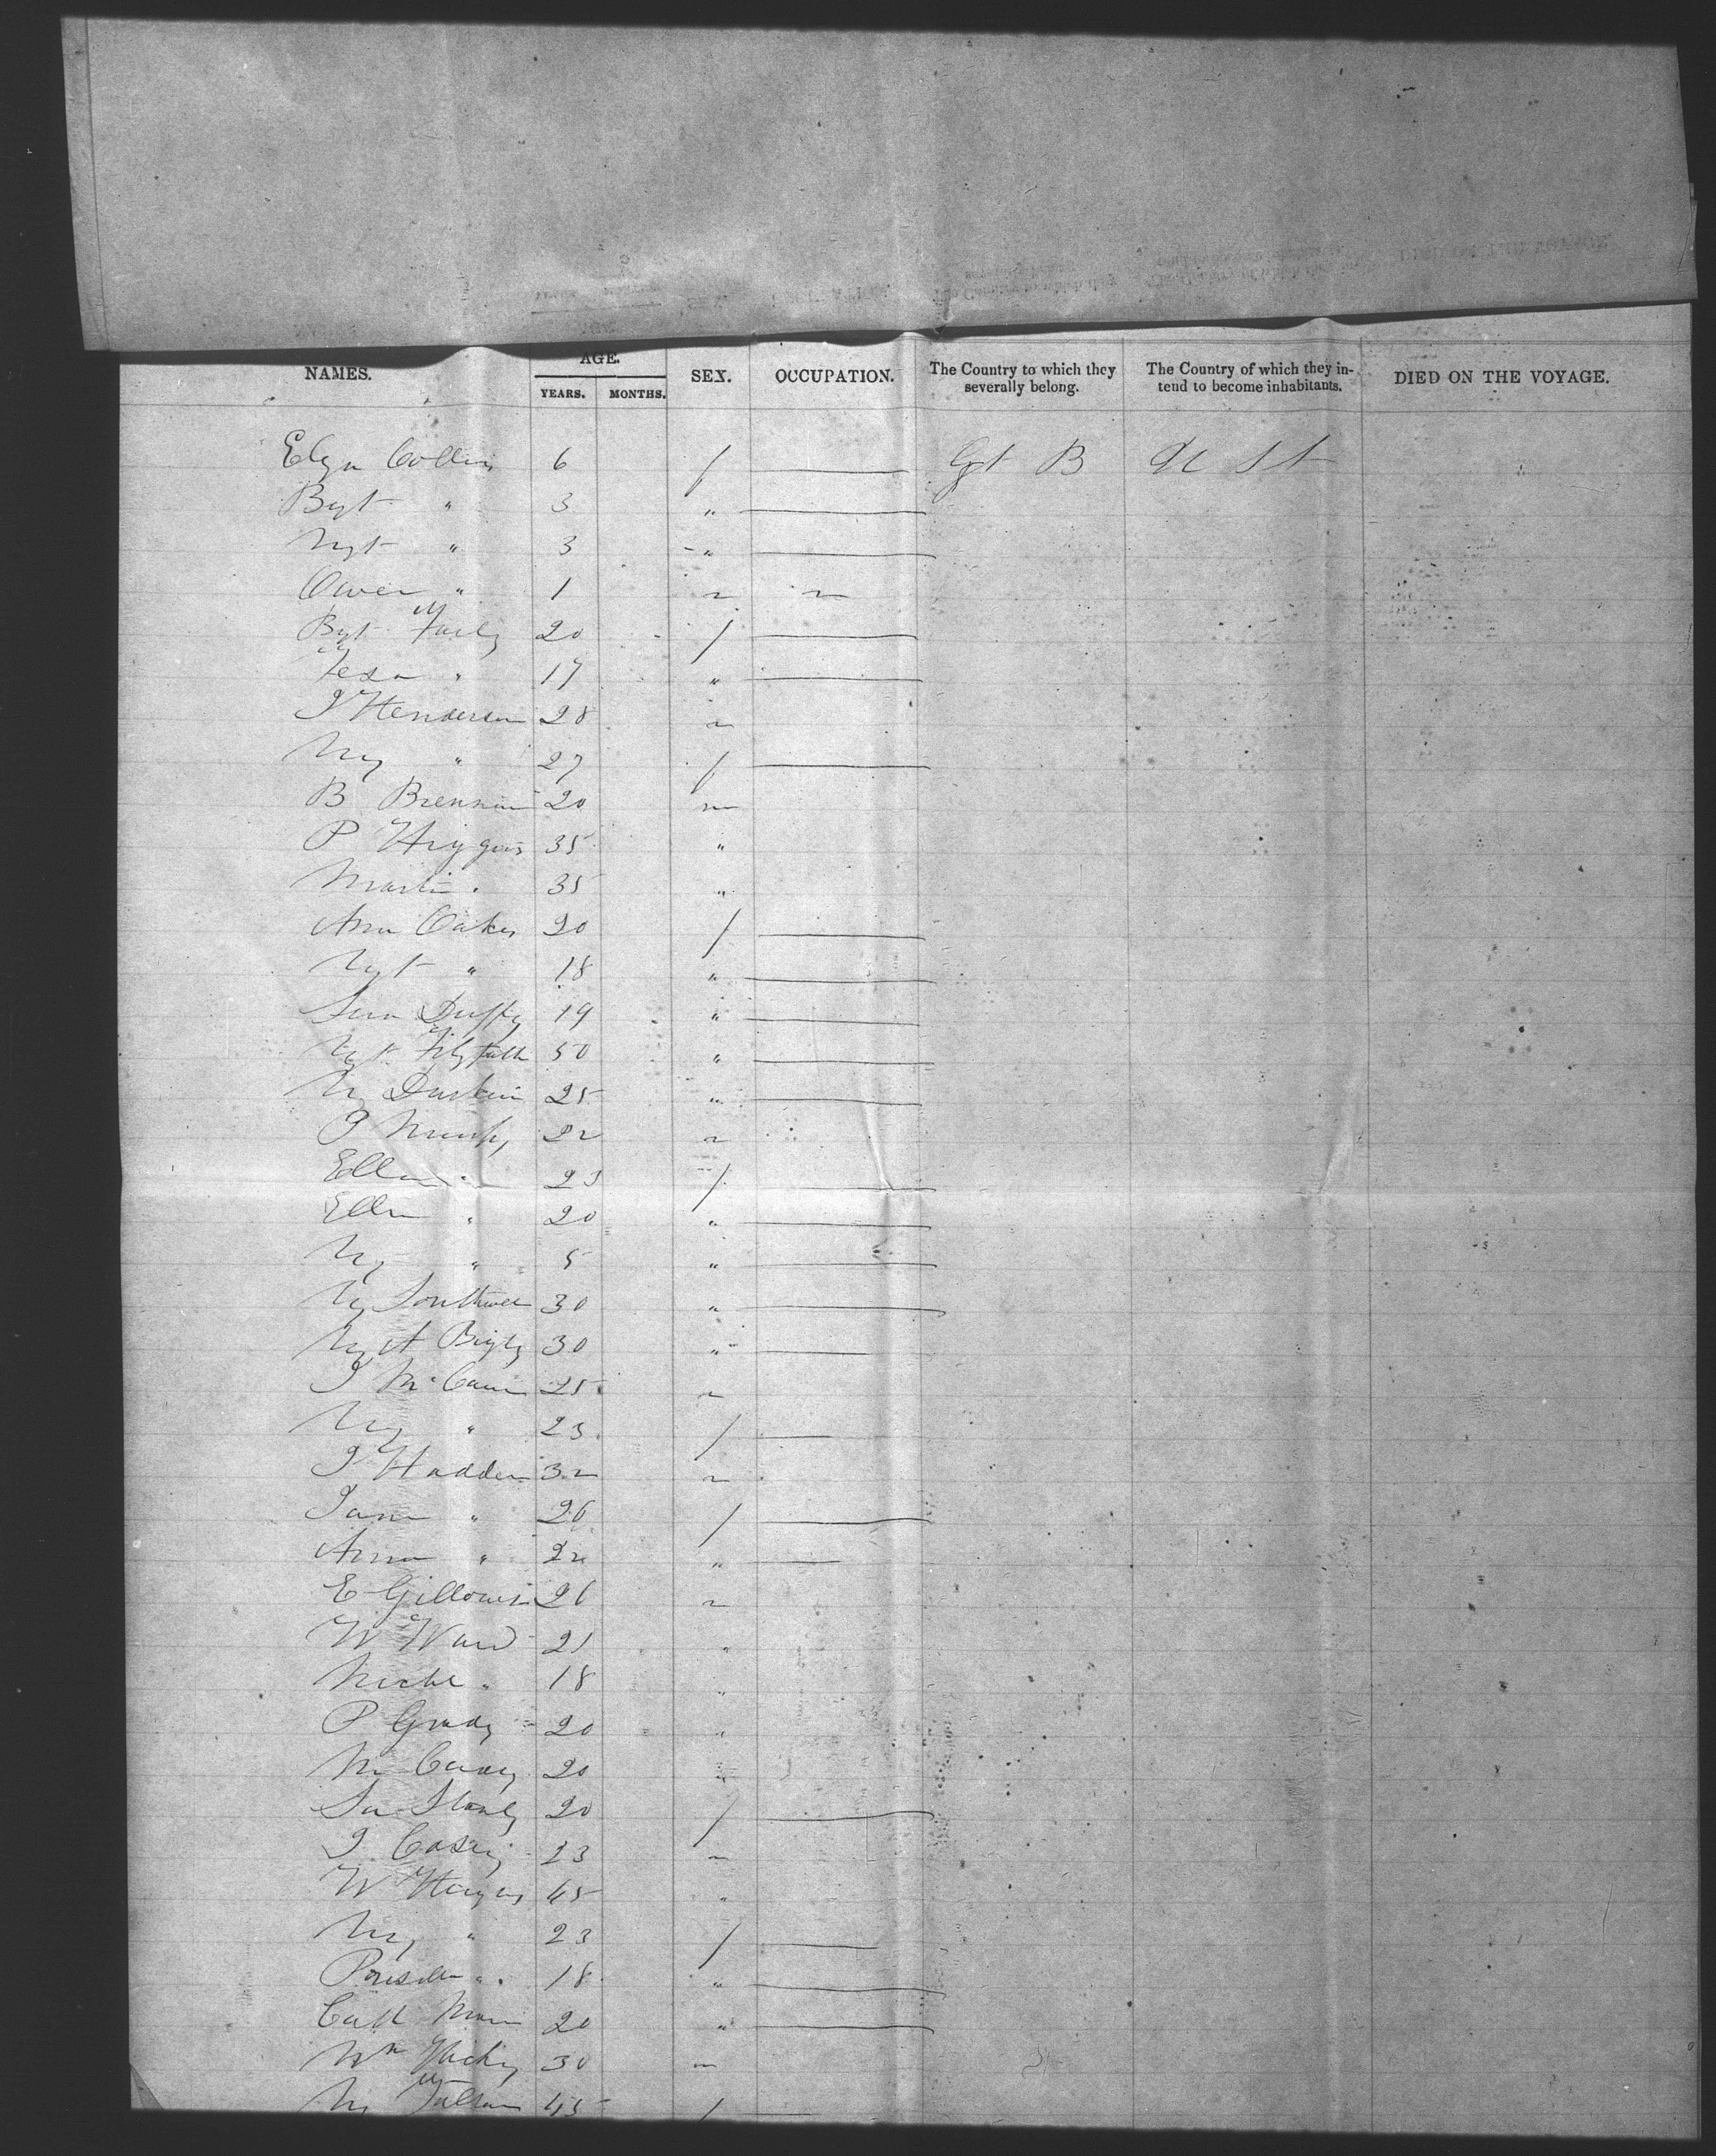 NAMES. AGE. YEARS. MONTHS. SEX. OCCUPATION. The Country to which they severally belong. The Country of which they intend to become inhabitants. DIED ON THE VOYAGE.
Elzn Collins 6 f Gt B U St
Bgt " 3 "
Mgt " 3 "
Owen " 1 m
Bgt 20 f
" 17 "
J Henderson 28 m
My " 27 f
B Brennan 20 m
P Higgins 35 "
Martin " 35 "
Ann Oakes 20 f
Mgt " 18 "
Duffy 19 "
Mgt 50 "
M Durkin 25 "
J Murphy 22 m
Ellen " 23 f
Ellen " 20 "
My " 5 "
My Southwell 30 "
Mgt 30 "
J McCann 25 m
My " 23 f
J Hadden 32 m
Jane " 26 f
Anna " 22 "
E 26 m
W Ward 21 "
Michl " 18 "
P Grady 20 "
M 20 "
20 f
J 23 m
W 45 "
My " 23 f
Priscilla " 18 "
Cath 20 "
Wm 30 m
My 45 f